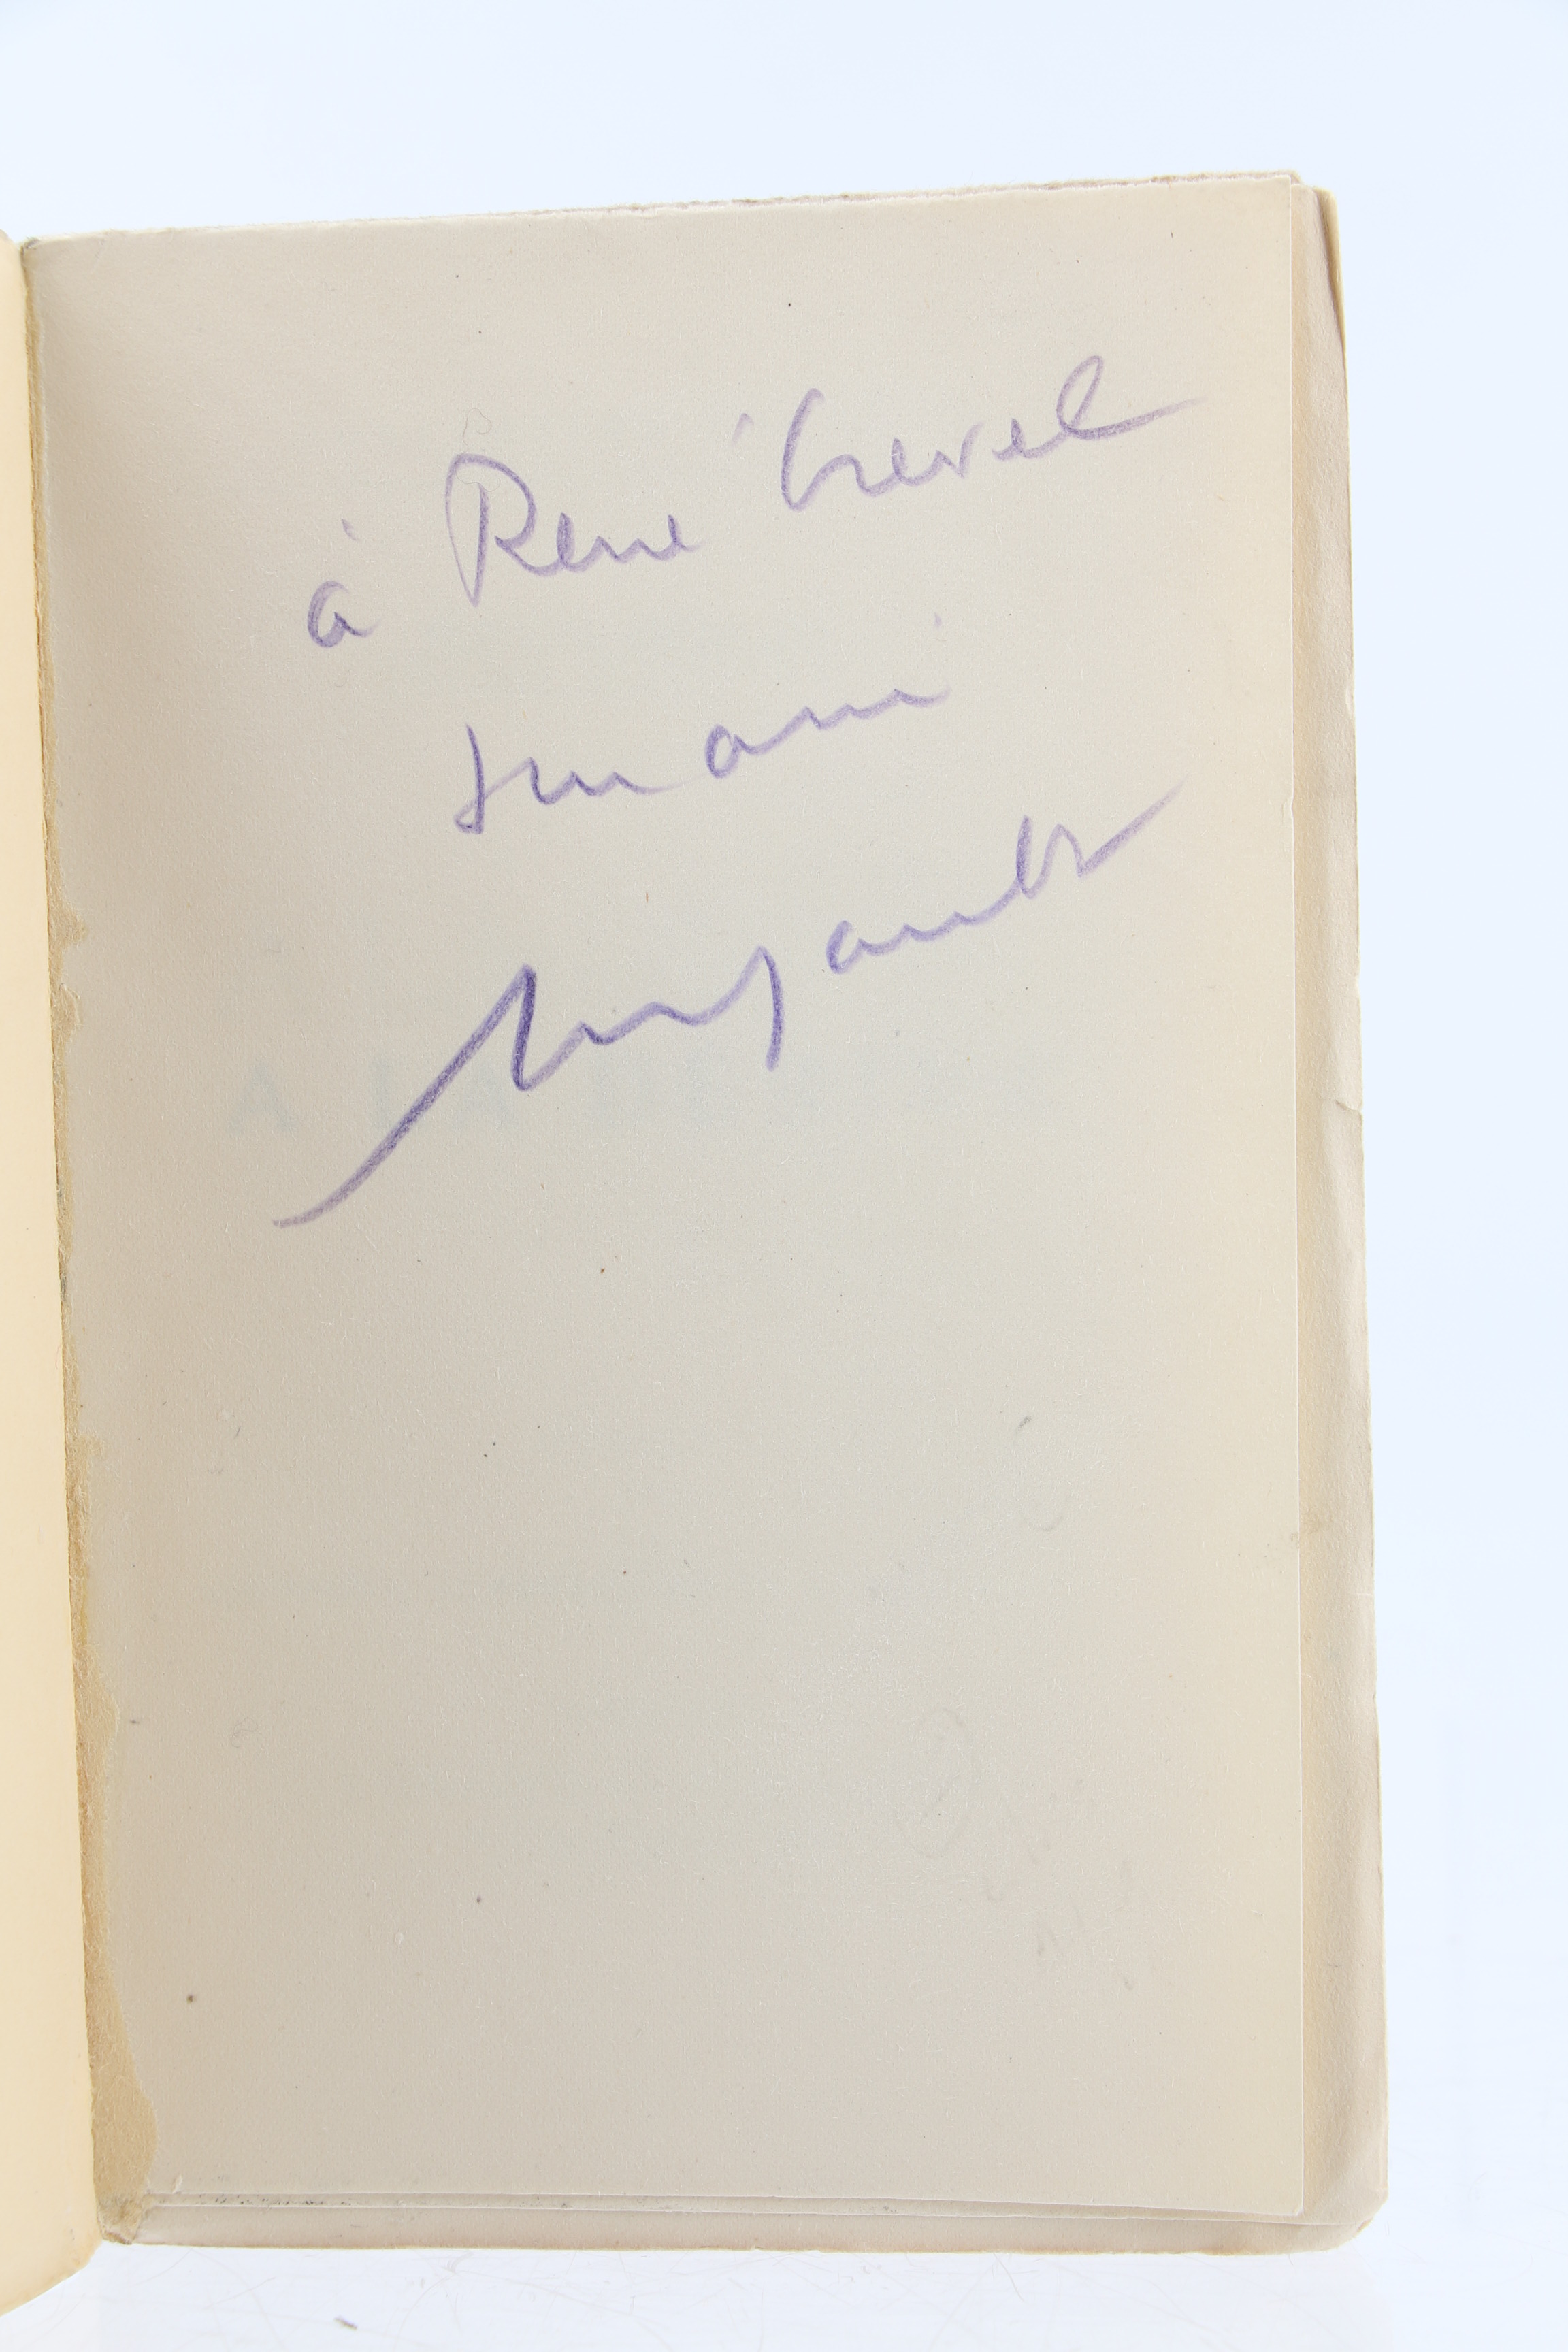 à René Crevel
son ami
Soupault